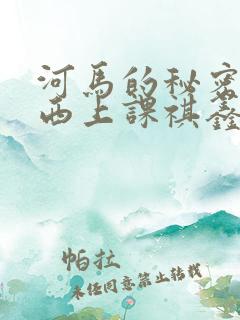 河馬的秘密
西上課祺鑫
帕拉
未经同意禁止转载